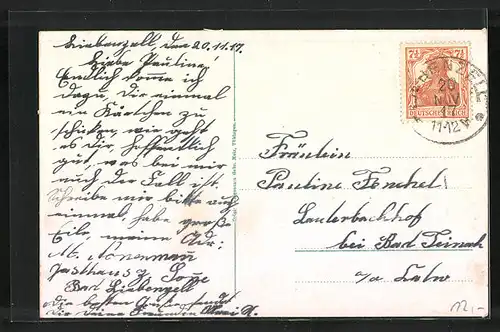 Liebenzell, den 20.11.17.
Liebe Pauline!
Endlich komme ich
dazu, dir einmal
ein Kärtchen zu
schicken, wie geht
es dir, hoffentlich
gut, was bei mir
auch der Fall ist.
Schreibe mir bitte auch
einmal, habe große
Eile, meine Adr:
M. Nonnenmann
Gasthaus z.
Bad Liebenzell
die besten Grüße sendet
dir deine Freundin
Fräulein
Pauline
Lauterbachhof
bei Bad Teinach
Calw
7½ 7½
DEUTSCHES REICH
LIEBENZELL
20
NOV
17
11-12V
12,-